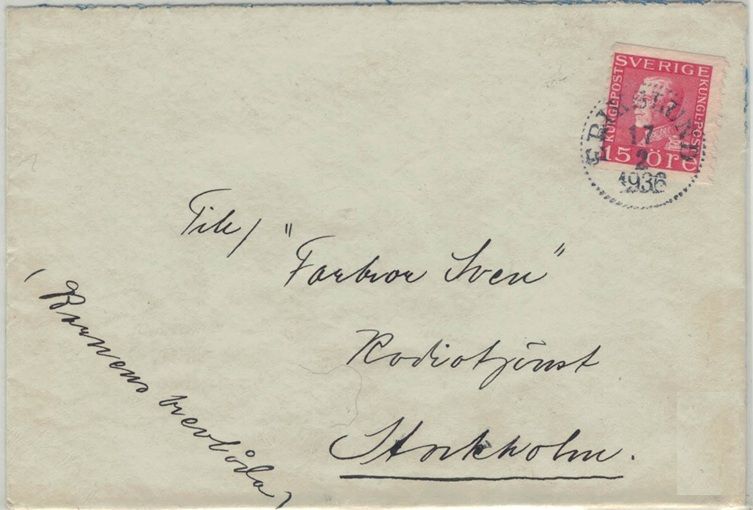 SVERIGE
KUNGL-POST
KUNGL-POST
15 ÖRE
ERIKSLUND
17
2
1936
Till "Farbror Sven"
Radiotjänst
Stockholm.
(Barnens brevlåda)